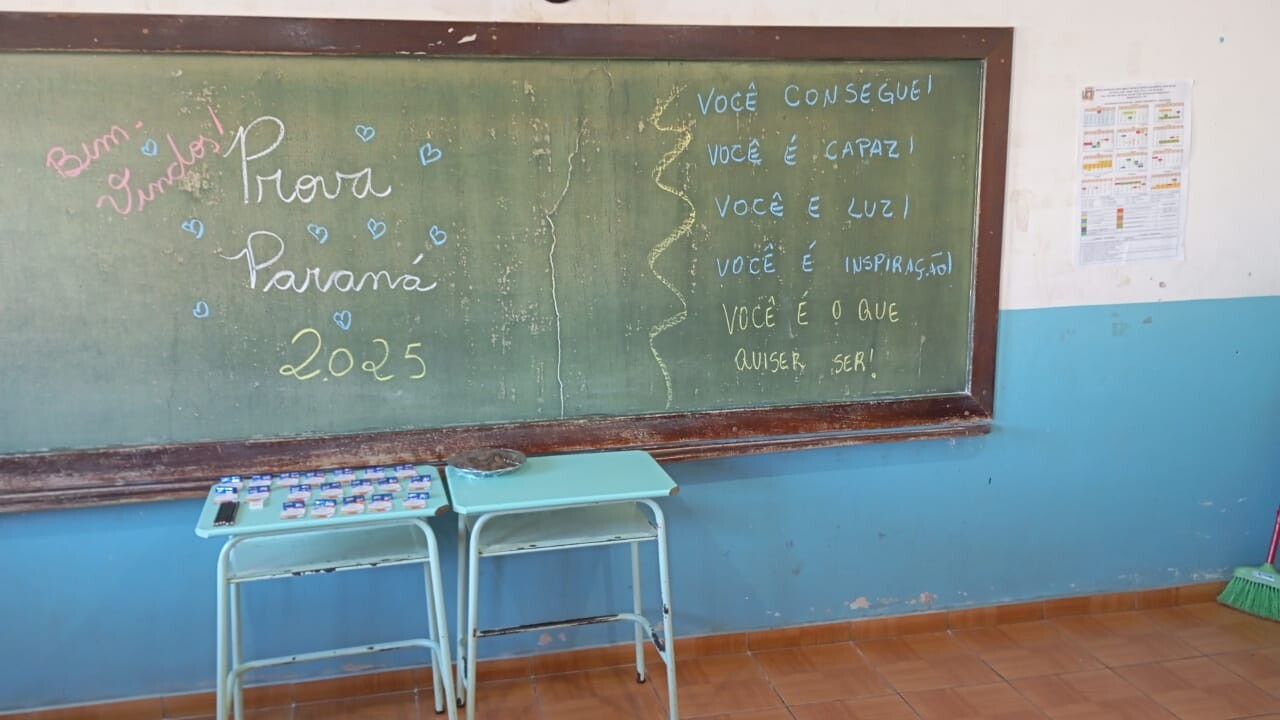 Bem-
Vindos!
Prova
Paraná
2025
VOCÊ CONSEGUE!
VOCÊ É CAPAZ!
VOCÊ E LUZ!
VOCÊ É INSPIRAÇÃO!
VOCÊ É O QUE
QUISER SER!